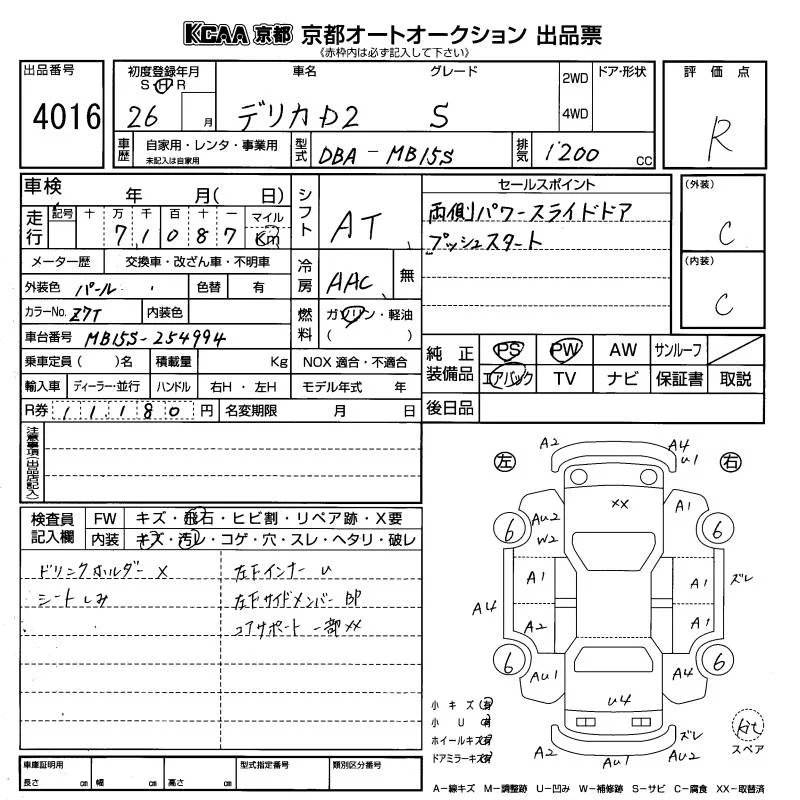 KCAA 京都 京都オートオークション 出品票
《赤枠内は必ず記入して下さい》
出品番号 初度登録年月 車名 グレード 2WD ドア・形状 評価点
S・H・R
4016 26 月 デリカD2 S 4WD R
車歴 自家用・レンタ・事業用 型式 DBA-MB15S 排気 1200 CC
未記入は自家用
車検 年 月( 日) シフト AT セールスポイント (外装)
走行 記号 十 万 千 百 十 一 マイル 両側パワースライドドア C
7 1 0 8 7 km プッシュスタート
メーター歴 交換車・改ざん車・不明車 冷房 AAC 無 (内装)
外装色 パール 色替 有 C
カラーNo. Z7T 内装色 燃料 ガソリン・軽油
車台番号 MB15S-254994 ( )
乗車定員( )名 積載量 Kg NOX 適合・不適合 純正装備品 PS PW AW サンルーフ
輸入車 ディーラー・並行 ハンドル 右H・左H モデル年式 年 エアバック TV ナビ 保証書 取説
R券 11180 円 名変期限 月 日 後日品
注意事項(出品店記入)
左 右
A2 A4 U1
検査員記入欄 FW キズ・飛石・ヒビ割・リペア跡・X要
内装 キズ・汚レ・コゲ・穴・スレ・ヘタリ・破レ
XX
6 AU2 W2 A1 6
ドリンクホルダー X 左下インナー U
A1 A1 ズレ
シートしみ 左下サイドメンバー BP
A4 A2 A1
コアサポート 一部XX
6 AU1 A4 6
U4
小キズ(有)
小U(有)
ホイールキズ(有)
ドアミラーキズ(有)
A2 AU1 ズレ AU2
kit
スペア
車庫証明用 型式指定番号 類別区分番号
長さ cm 幅 cm 高さ cm
A-線キズ M-調整跡 U-凹み W-補修跡 S-サビ C-腐食 XX-取替済